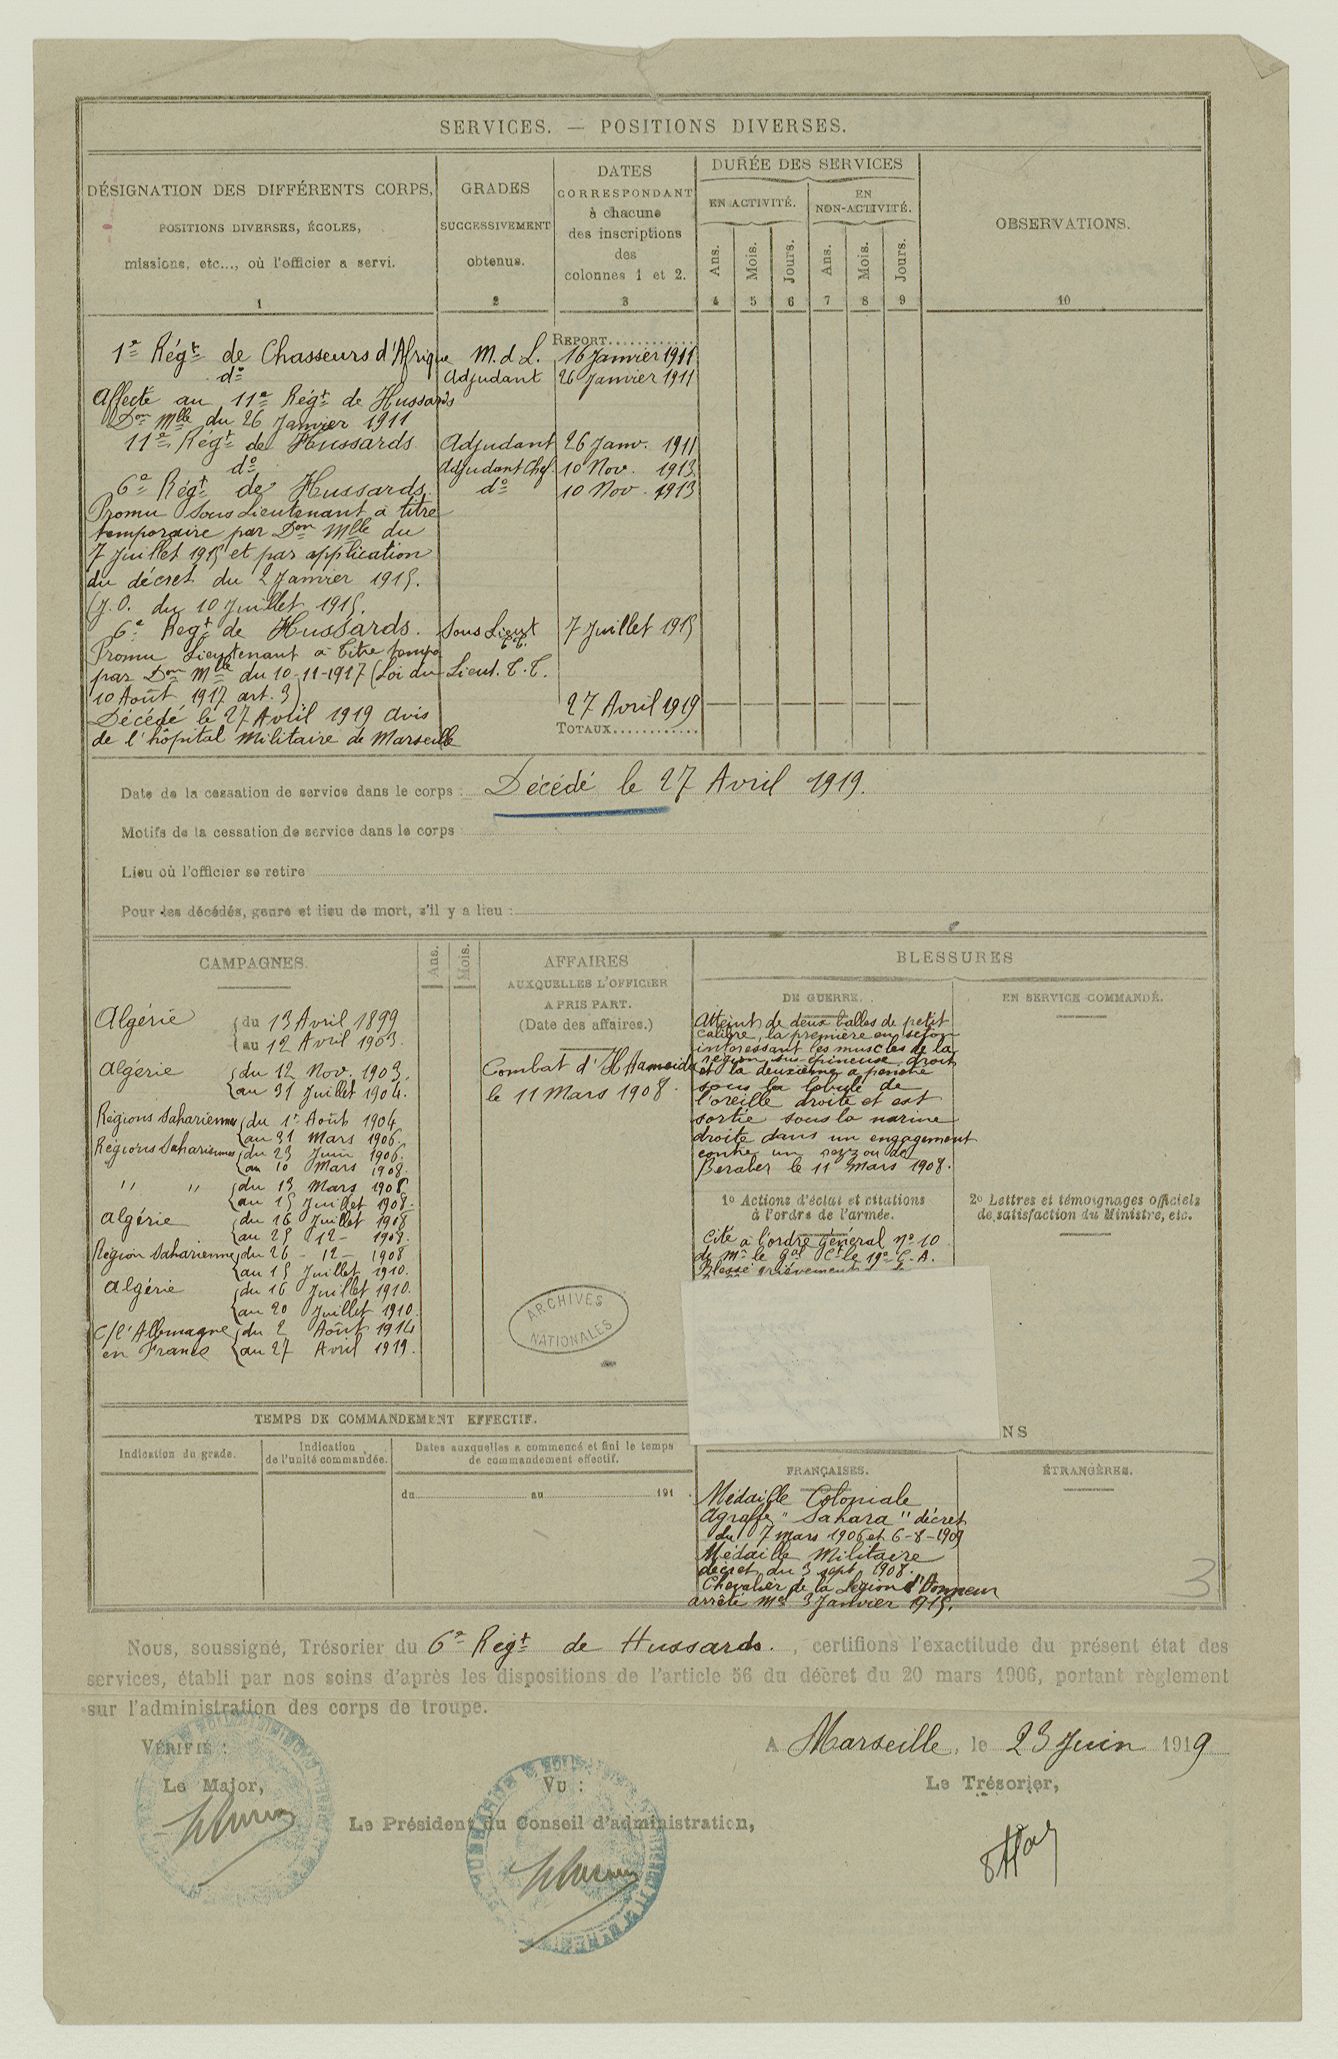 SERVICES. — POSITIONS DIVERSES.
DÉSIGNATION DES DIFFÉRENTS CORPS,
POSITIONS DIVERSES, ÉCOLES,
missions, etc..., où l'officier a servi.
1
GRADES
SUCCESSIVEMENT
obtenus.
2
DATES
CORRESPONDANT
à chacune
des inscriptions
des
colonnes 1 et 2.
3
DURÉE DES SERVICES
EN ACTIVITÉ.
EN
NON-ACTIVITÉ.
Ans. Mois. Jours. Ans. Mois. Jours.
4 5 6 7 8 9
OBSERVATIONS.
10
REPORT............
1er Régt de Chasseurs d'Afrique M. d L. 16 Janvier 1911
do Adjudant 26 Janvier 1911
Affecté au 11e Régt de Hussards
Don Mlle du 26 Janvier 1911
11e Régt de Hussards Adjudant 26 Janv. 1911
do Adjudant Chef. 10 Nov. 1913
6e Régt de Hussards do 10 Nov. 1913
Promu Sous Lieutenant à titre
temporaire par Don Mlle du
7 Juillet 1915 et par application
du décret du 2 Janvier 1915.
(J.O. du 10 Juillet 1915.
6e Regt de Hussards. Sous Lieut T.T. 7 Juillet 1915
Promu Lieutenant à titre tempo
par Don Mlle du 10-11-1917 (Loi du Lieut. T.T.
10 Août 1917 art. 3)
27 Avril 1919
Décédé le 27 Avril 1919 avis
de l'hôpital Militaire de Marseille
TOTAUX............
Date de la cessation de service dans le corps : Décédé le 27 Avril 1919.
Motifs de la cessation de service dans le corps
Lieu où l'officier se retire
Pour les décédés, genre et lieu de mort, s'il y a lieu :
CAMPAGNES.
Ans. Mois.
Algérie du 13 Avril 1899
au 12 Avril 1903.
Algérie du 12 Nov. 1903.
au 31 Juillet 1904.
Régions Sahariennes du 1er Août 1904
au 31 Mars 1906.
Régions Sahariennes du 23 Juin 1906.
au 10 Mars 1908.
" " du 13 Mars 1908
au 15 Juillet 1908.
Algérie du 16 Juillet 1908
au 25 - 12 - 1908.
Région Saharienne du 26 - 12 - 1908
au 15 Juillet 1910.
Algérie du 16 Juillet 1910.
au 20 Juillet 1910.
C/l'Allemagne du 2 Août 1914
en France au 27 Avril 1919.
AFFAIRES
AUXQUELLES L'OFFICIER
A PRIS PART.
(Date des affaires.)
Combat d'H Hameida
le 11 Mars 1908.
ARCHIVES
NATIONALES
BLESSURES
DE GUERRE.
EN SERVICE COMMANDÉ.
Atteint de deux balles de petit
calibre, la première en séton
intéressant les muscles de la
région sus-épineuse droite
et la deuxième a pénétré
sous la lobule de
l'oreille droite et est
sortie sous la narine
droite dans un engagement
contre un rezzou de
Beraber le 11 Mars 1908.
1º Actions d'éclat et citations
à l'ordre de l'armée.
2º Lettres et témoignages officiels
de satisfaction du Ministre, etc.
Cité à l'ordre Général no 10
de Mr le Gal Ct le 19e C.A.
Blessé grièvement
NS
TEMPS DE COMMANDEMENT EFFECTIF.
Indication du grade.
Indication
de l'unité commandée.
Dates auxquelles a commencé et fini le temps
de commandement effectif.
du au 191 .
FRANÇAISES.
ÉTRANGÈRES.
Médaille Coloniale
agrafe "Sahara" décret
du 7 mars 1906 et 6-8-1909
Médaille Militaire
décret du 3 sept 1908.
Chevalier de la Légion d'Honneur
arrêté Mel 3 Janvier 1915.
3
Nous, soussigné, Trésorier du 6e Régt de Hussards. , certifions l'exactitude du présent état des
services, établi par nos soins d'après les dispositions de l'article 56 du décret du 20 mars 1906, portant règlement
sur l'administration des corps de troupe.
A Marseille, le 23 Juin 1919
VÉRIFIÉ :
Le Major,
Vu :
Le Président du Conseil d'administration,
Le Trésorier,